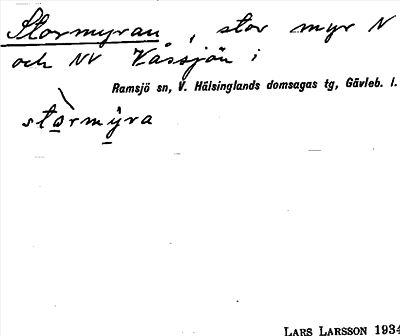 Stormyran, stor myr N
och NV Våssjön i
Ramsjö sn, V. Hälsinglands domsagas tg, Gävleb. l.
stòrmyra
LARS LARSSON 1934